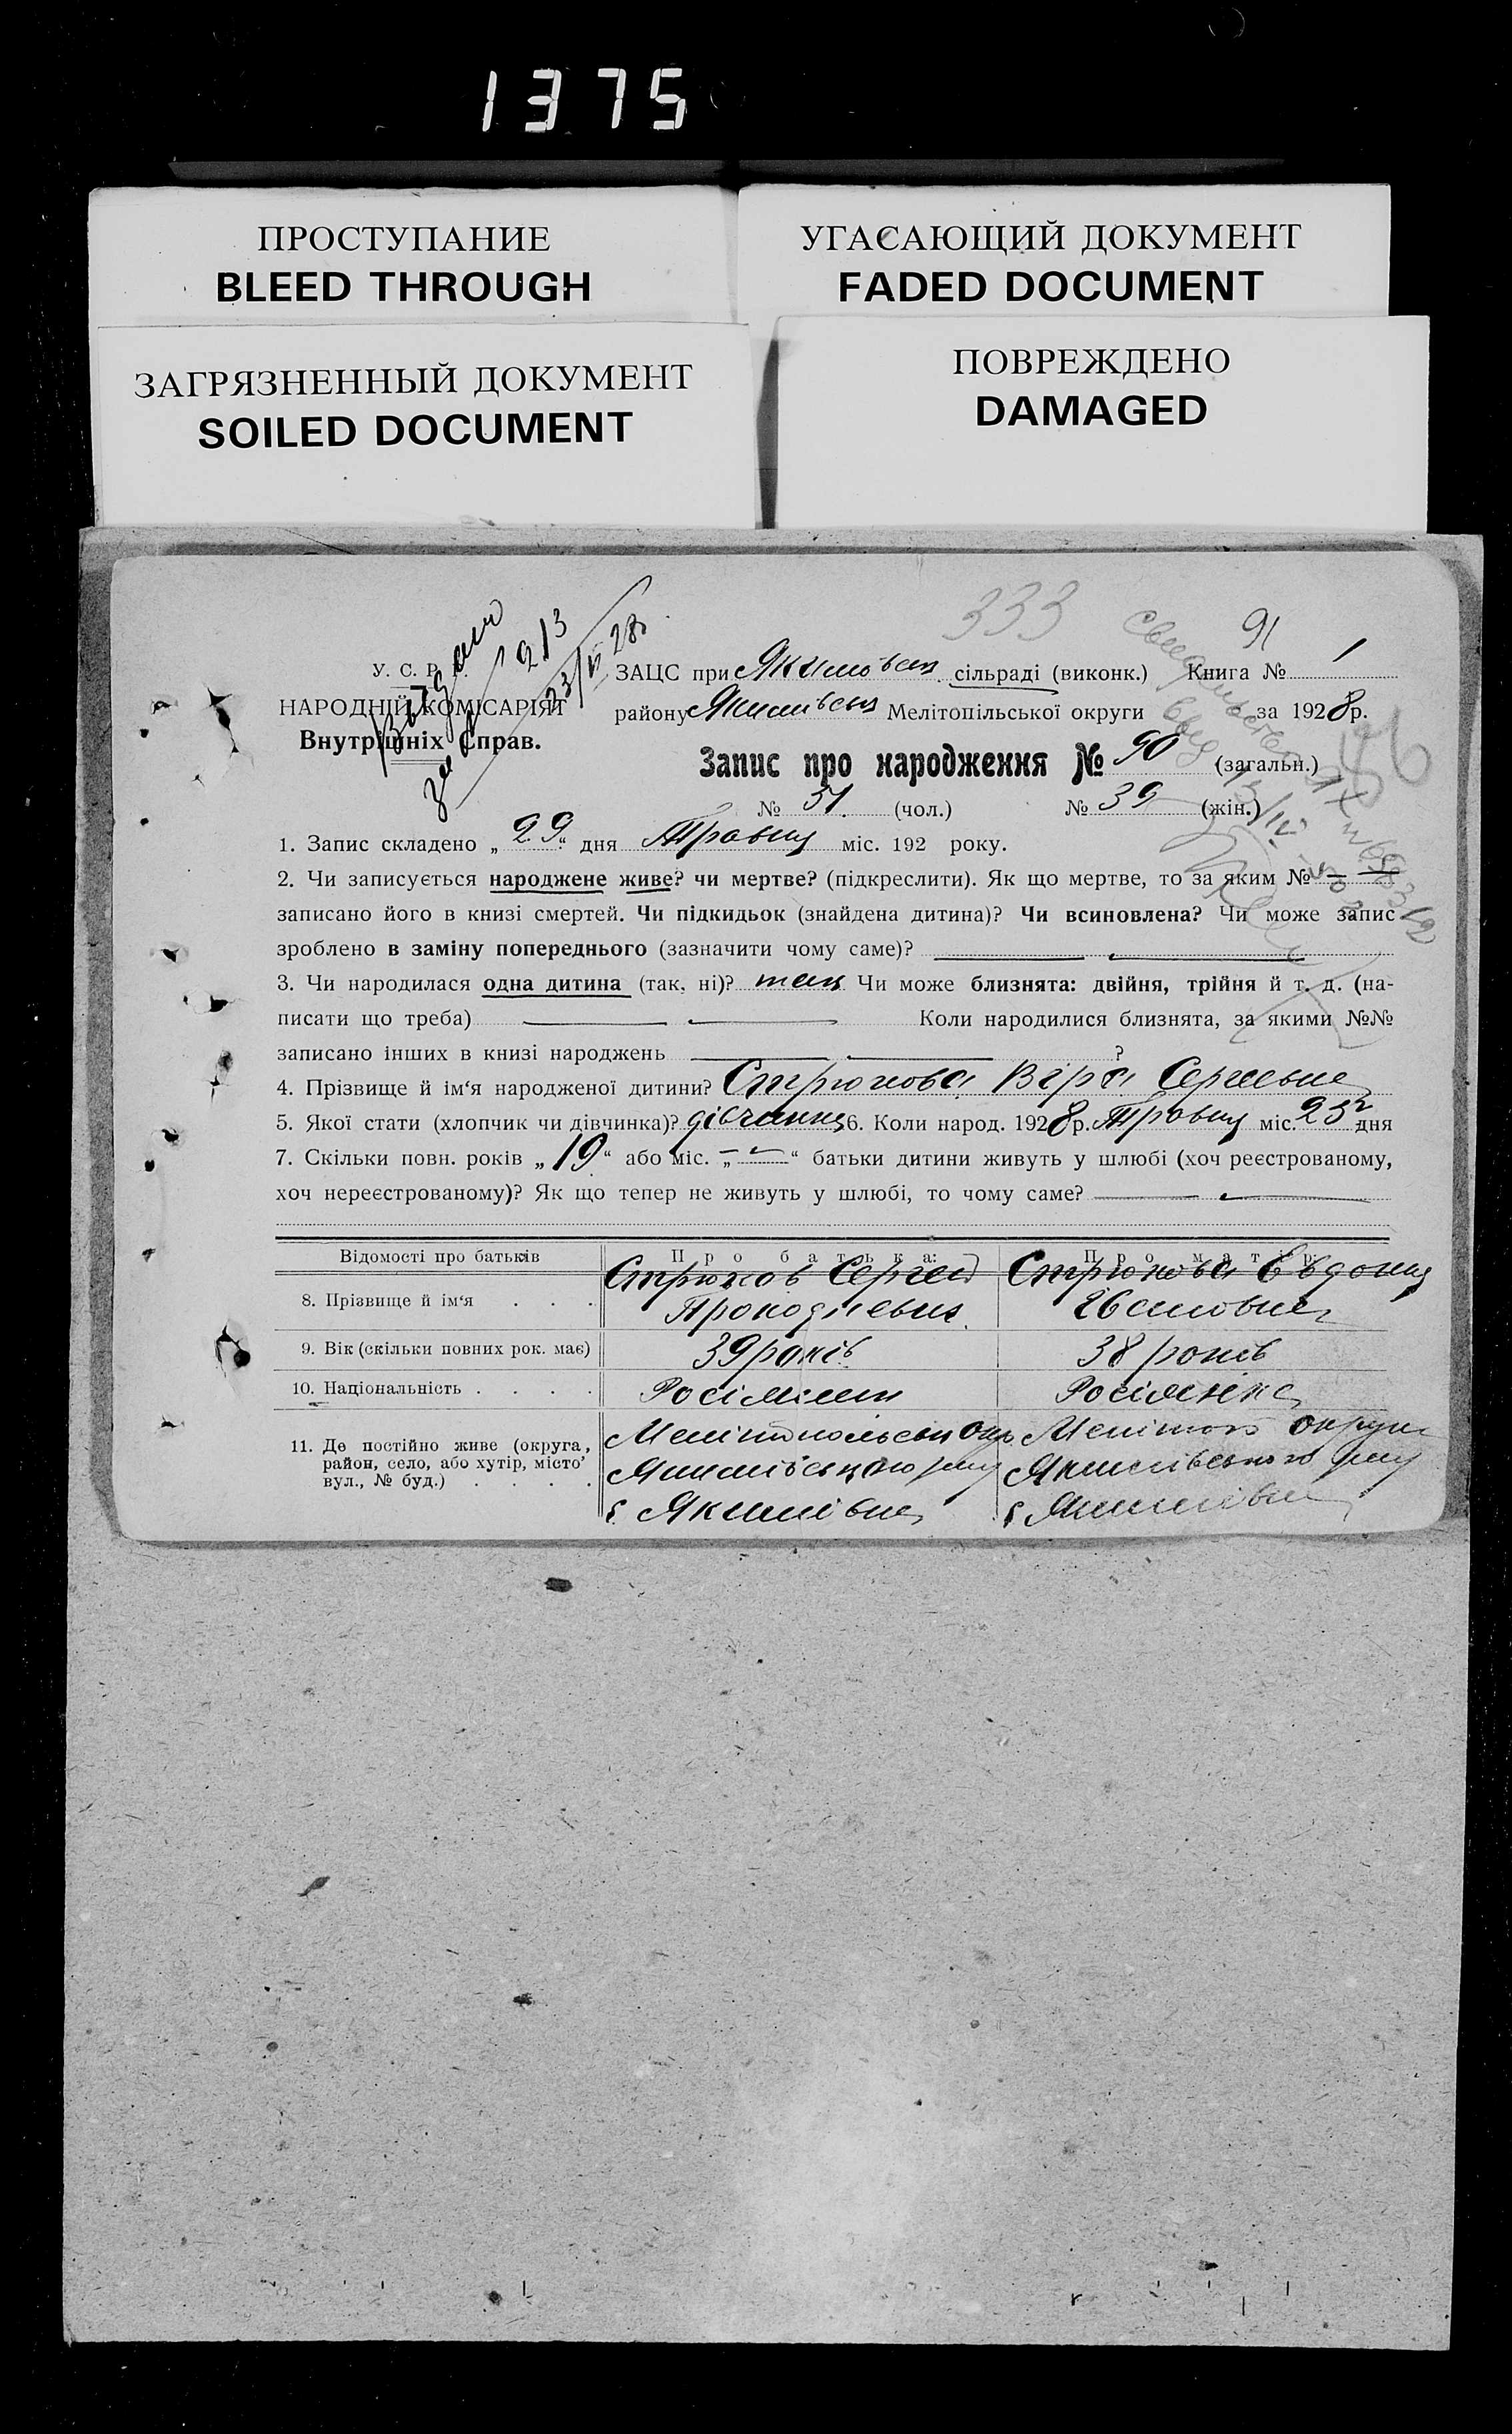 1375
ПРОСТУПАНИЕ
BLEED THROUGH
УГАСАЮЩИЙ ДОКУМЕНТ
FADED DOCUMENT
ЗАГРЯЗНЕННЫЙ ДОКУМЕНТ
SOILED DOCUMENT
ПОВРЕЖДЕНО
DAMAGED
333
91
213
23/VI 28
У. С. Р. Р.
НАРОДНІЙ КОМІСАРІЯТ
Внутрішніх Справ.
ЗАЦС при Якимівськ. сільраді (виконк.) Книга № 1
району Якимівськ Мелітопільської округи за 1928р.
Запис про народження № 90 (загальн.)
№ 51. (чол.) № 39 (жін.)
1. Запис складено „29“ дня Травня міс. 192 року.
2. Чи записується народжене живе? чи мертве? (підкреслити). Як що мертве, то за яким № —
записано його в книзі смертей. Чи підкидьок (знайдена дитина)? Чи всиновлена? Чи може запис
зроблено в заміну попереднього (зазначити чому саме)?
3. Чи народилася одна дитина (так, ні)? так Чи може близнята: двійня, трійня й т. д. (на-
писати що треба) Коли народилися близнята, за якими №№
записано інших в книзі народжень ?
4. Прізвище й ім‘я народженої дитини? Стрюкова Віра Сергеевна
5. Якої стати (хлопчик чи дівчинка)? дівчинка 6. Коли народ. 1928р. Травня міс. 23 дня
7. Скільки повн. років „19“ або міс. „—“ батьки дитини живуть у шлюбі (хоч реєстрованому,
хоч нереєстрованому)? Як що тепер не живуть у шлюбі, то чому саме?
Відомості про батьків Про батька: Про матір:
8. Прізвище й ім‘я . . . Стрюков Сергей Стрюкова Евдокия
9. Вік (скільки повних рок. має) 39 років 38 років
10. Національність . . . . Росіянин Росіянка
11. Де постійно живе (округа, Мелітопольськ Окр. Мелітоп округи
район, село, або хутір, місто’ Якимівського рну Якимівського рну
вул., № буд.) . . . . с. Якимівка с Якимівка